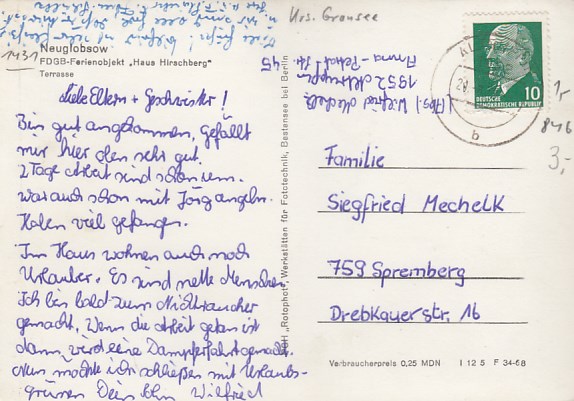 Neuglobsow
FDGB-Ferienobjekt „Haus Hirschberg"
Terrasse
1431
Liebe Eltern + Geschwister!
Bin gut angekommen, gefällt
mir hier oben sehr gut.
2 Tage Arbeit sind schon rum.
War auch schon mit Jörg angeln.
Haben viel gefangen.
Im Haus wohnen auch noch
Urlauber. Es sind nette Menschen.
Ich bin bald zum Nichtraucher
gemacht. Wenn die Arbeit getan ist
dann wird eine Dampferfahrt gemacht.
Nun möchte ich schließen mit Urlaubs-
grüßen Dein Sohn Wilfried
"Rotophot", Werkstätten für Fototechnik, Bestensee bei Berlin
Krs. Gransee
Abs.: Wilfried Mechelk
1952
45
DEUTSCHE
DEMOKRATISCHE REPUBLIK
10
b
846
3,-
Familie
Siegfried Mechelk
759 Spremberg
Drebkauerstr. 16
Verbraucherpreis 0,25 MDN I 12 5 F 34-68